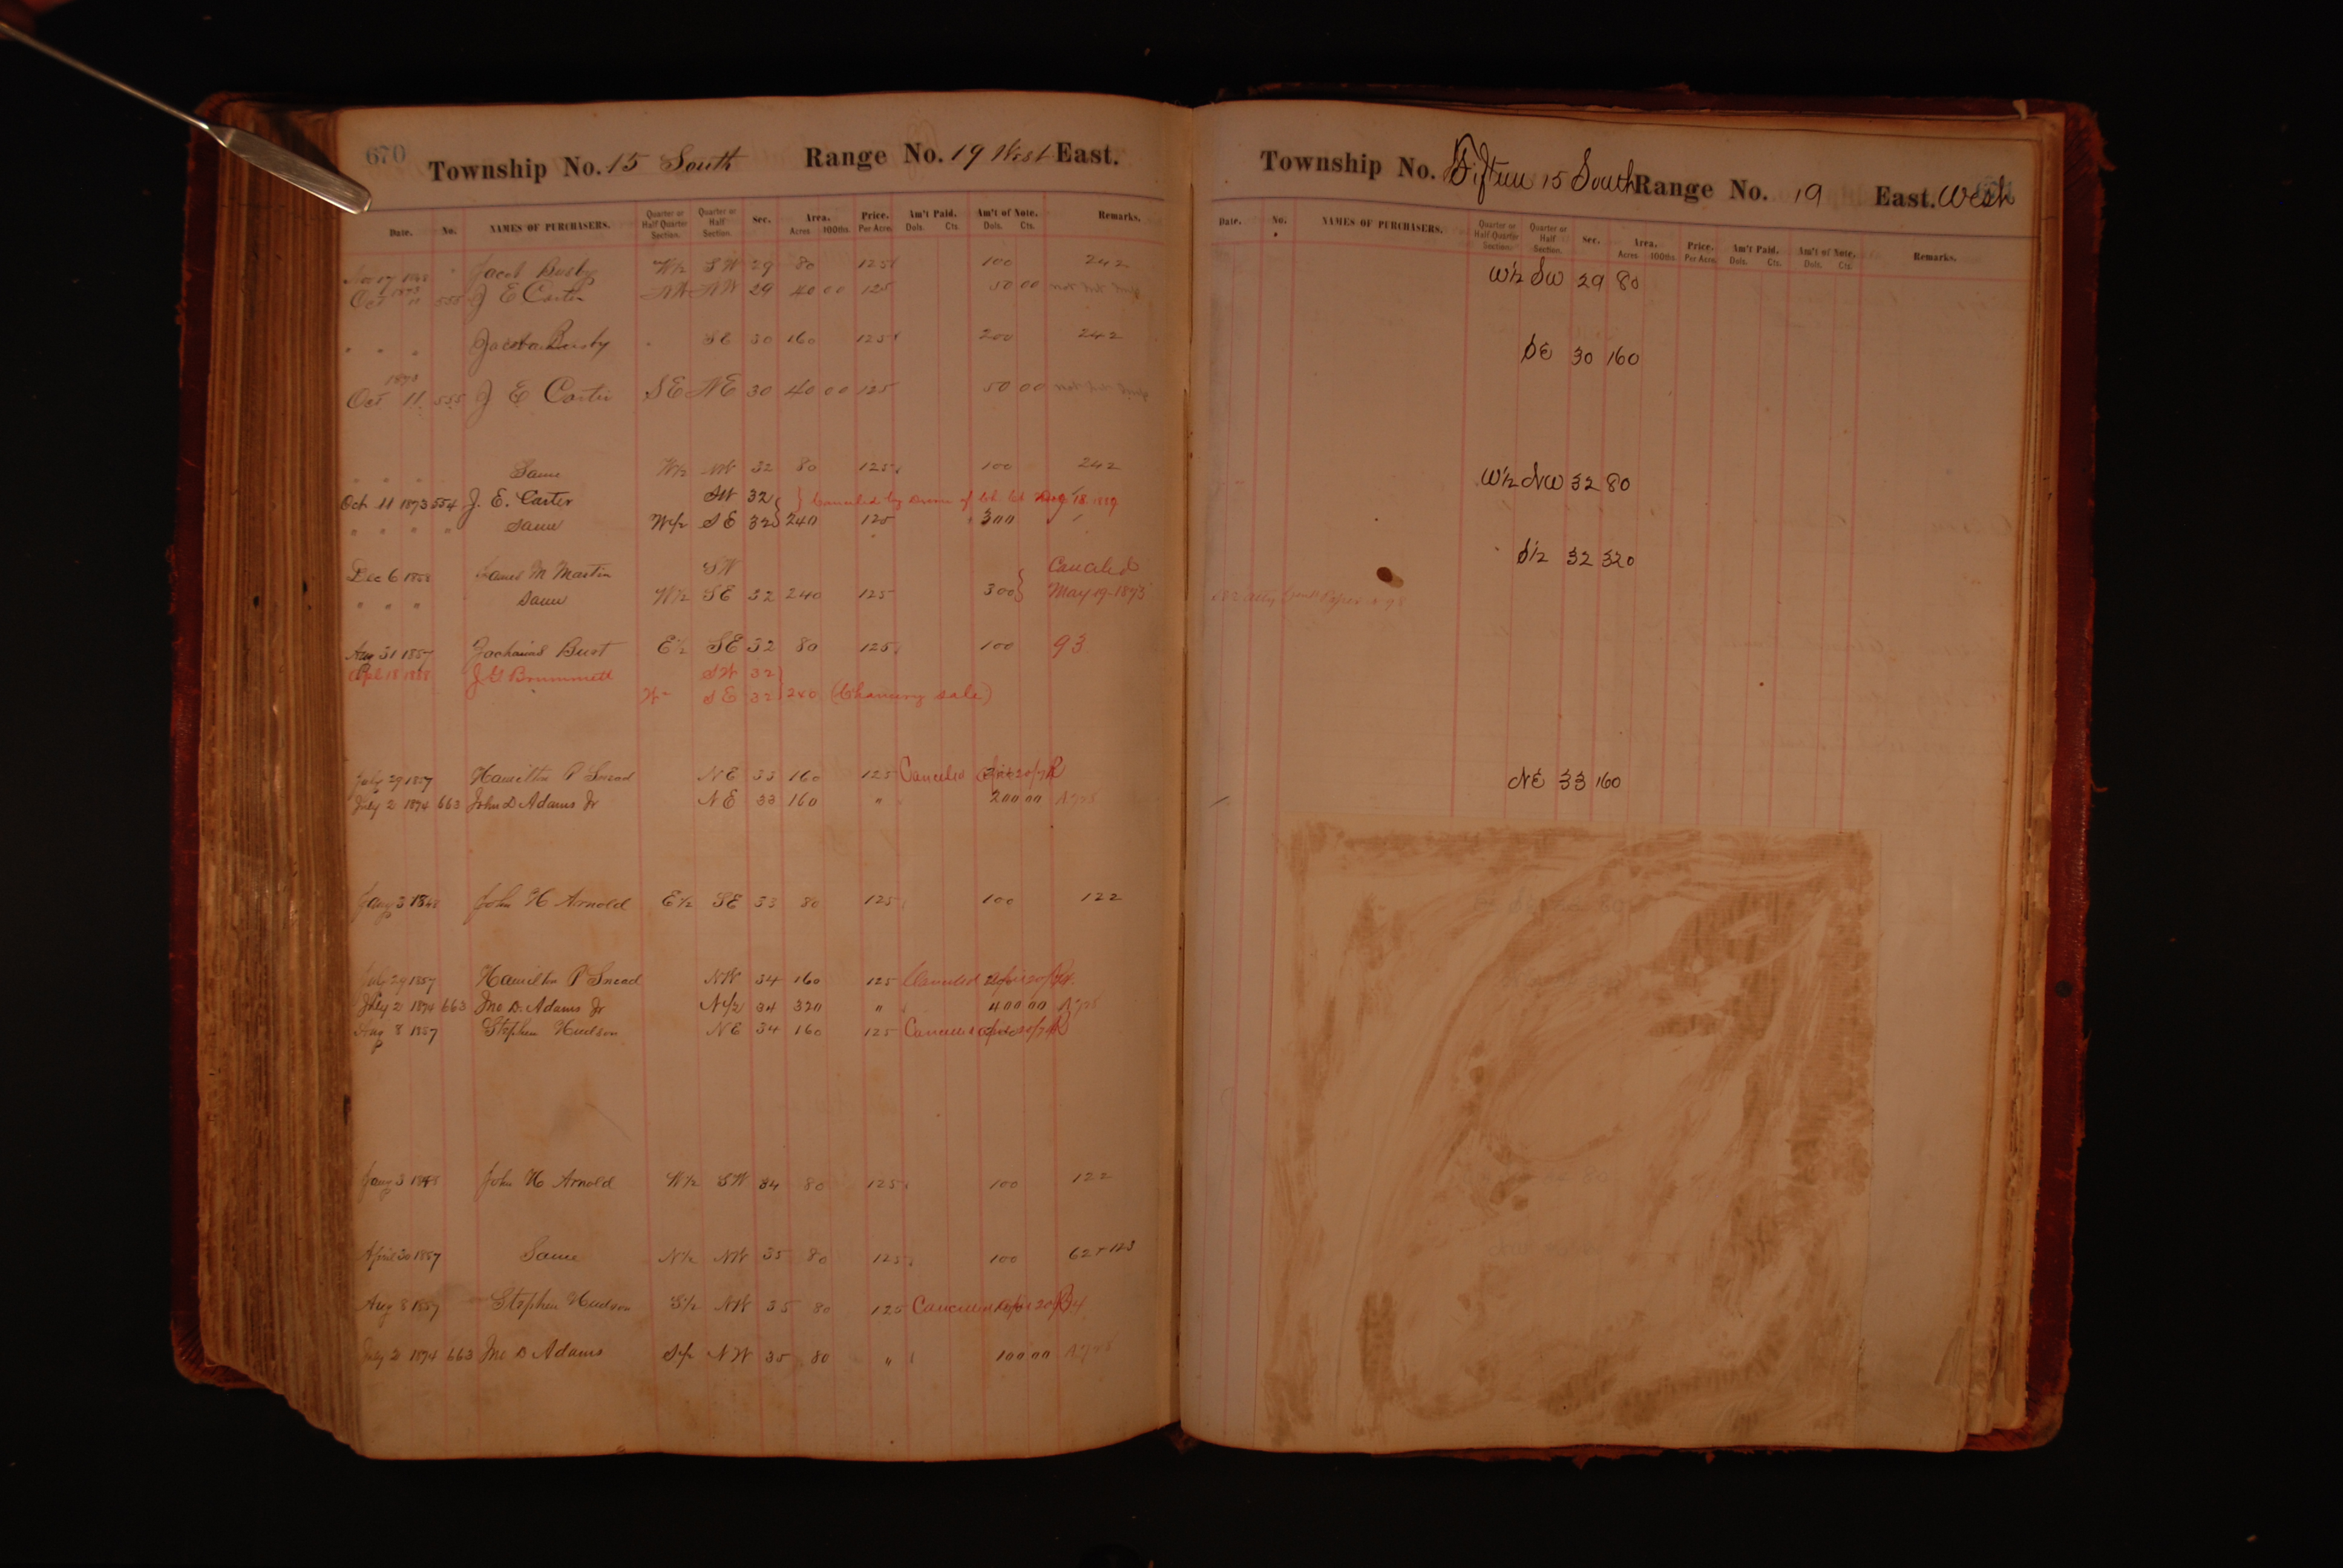 670
Township No. 15 South Range No. 19 West East.
Date. No. NAMES OF PURCHASERS. Quarter or Half Quarter Section. Quarter or Half Section. Sec. Area. Acres 100ths Price. Per Acre Am't Paid. Dols. Cts. Am't of Note. Dols. Cts. Remarks.
Nov 17 1868 Jacob Busby W½ SW 29 80 125 100 242
Oct 11 1873 555 J E Carter NW NW 29 40 00 125 50 00
" " " Jacob Busby SE 30 160 125 200 242
Oct 11 1873 555 J E Carter SE NE 30 40 00 125 50 00
" " " Same W½ NW 32 80 125 100 242
Oct 11 1873 554 J. E. Carter SW 32 } Canceled by Decree of Ch. 18 1887
" " " " Same W½ SE 32 240 125 300
Dec 6 M Martin SW Canceled
" " " Same W½ SE 32 240 125 300 } May 19 - 1873
Aug 31 1857 Bust E½ SE 32 80 125 100 93
18 1888 J G Brummett SW 32
W- SE 32 } 240 (Chancery sale)
July 29 1857 Hamilton P Snead NE 33 160 125 Canceled
July 2 1874 663 John D Adams Jr NE 33 160 " 200 00
Jany 3 1868 John H Arnold E½ SE 33 80 125 100 122
July 29 1857 Hamilton P Snead NW 34 160 125 Canceled
July 2 1874 663 Jno D. Adams Jr N½ 34 320 " 400 00
Aug 8 1857 Stephen Hudson NE 34 160 125 Canceled
Jany 3 John H Arnold W½ SW 34 80 125 100 122
April 30 1857 Same N½ NW 35 80 125 100 62 + 123
Aug 8 1857 Stephen Hudson S½ NW 35 80 125 Canceled
July 2 1874 663 Jno D Adams S½ NW 35 80 " 100 00
Township No. Fifteen 15 South Range No. 19 East. West
Date. No. NAMES OF PURCHASERS. Quarter or Half Quarter Section. Quarter or Half Section. Sec. Area. Acres 100ths Price. Per Acre. Am't Paid. Dols. Cts. Am't of Note. Dols. Cts. Remarks.
W½ SW 29 80
SE 30 160
W½ NW 32 80
S½ 32 320
NE 33 160